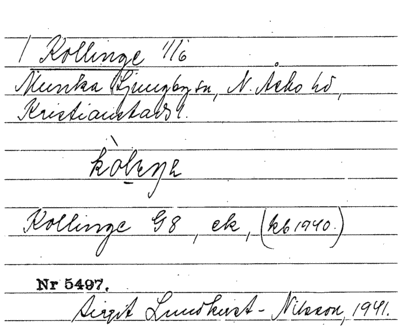 1 Kollinge 1/16
Munka Ljungby sn, N. Åsbo hd,
Kristianstads l.
Kollinge G8, ek, (kb 1940.)
Nr 5497.
Birgit Lundkvist-Nilsson, 1941.